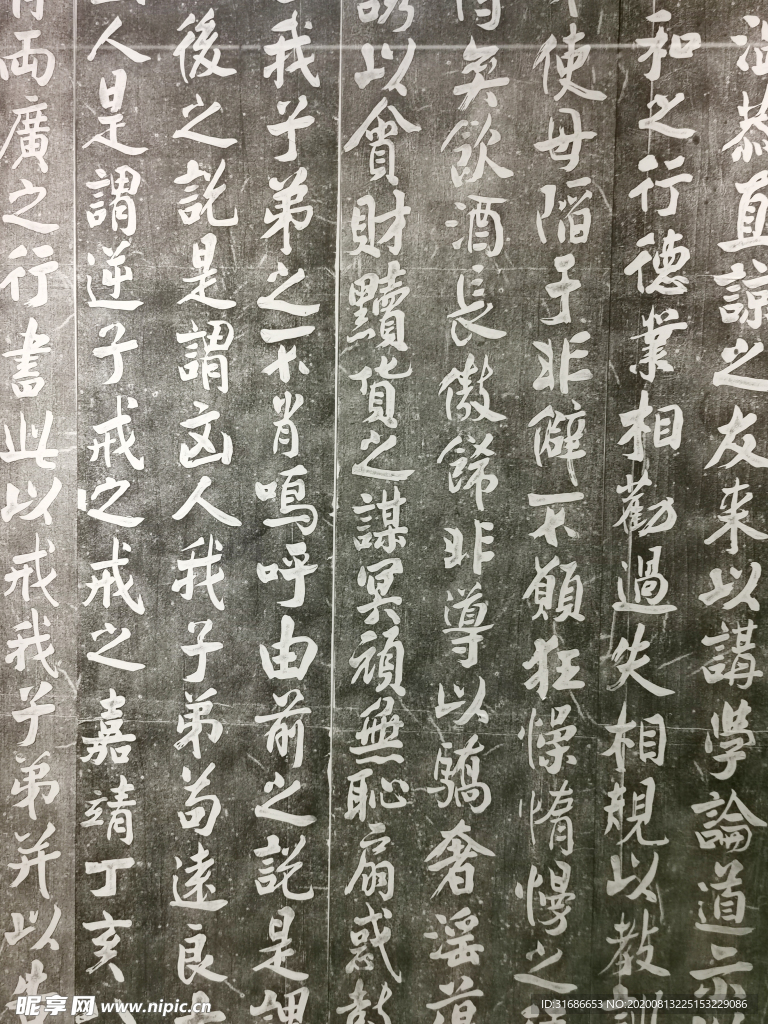 溫恭直諒之友来以講學論道示以
和之行德業相勸過失相規以教訓
使毋陷于非僻不願狂懆惰慢之
博奕飲酒長傲飾非導以驕奢淫蕩
誘以貪財黷貨之謀冥頑無恥扇惑鼓
我子弟之不肖嗚呼由前之說是謂
後之說是謂凶人我子弟苟遠良士
凶人是謂逆子戒之戒之嘉靖丁亥八
有兩廣之行書此以戒我子弟并以告
昵享网 www.nipic.cn
ID:31686653 NO:20200813225153229086